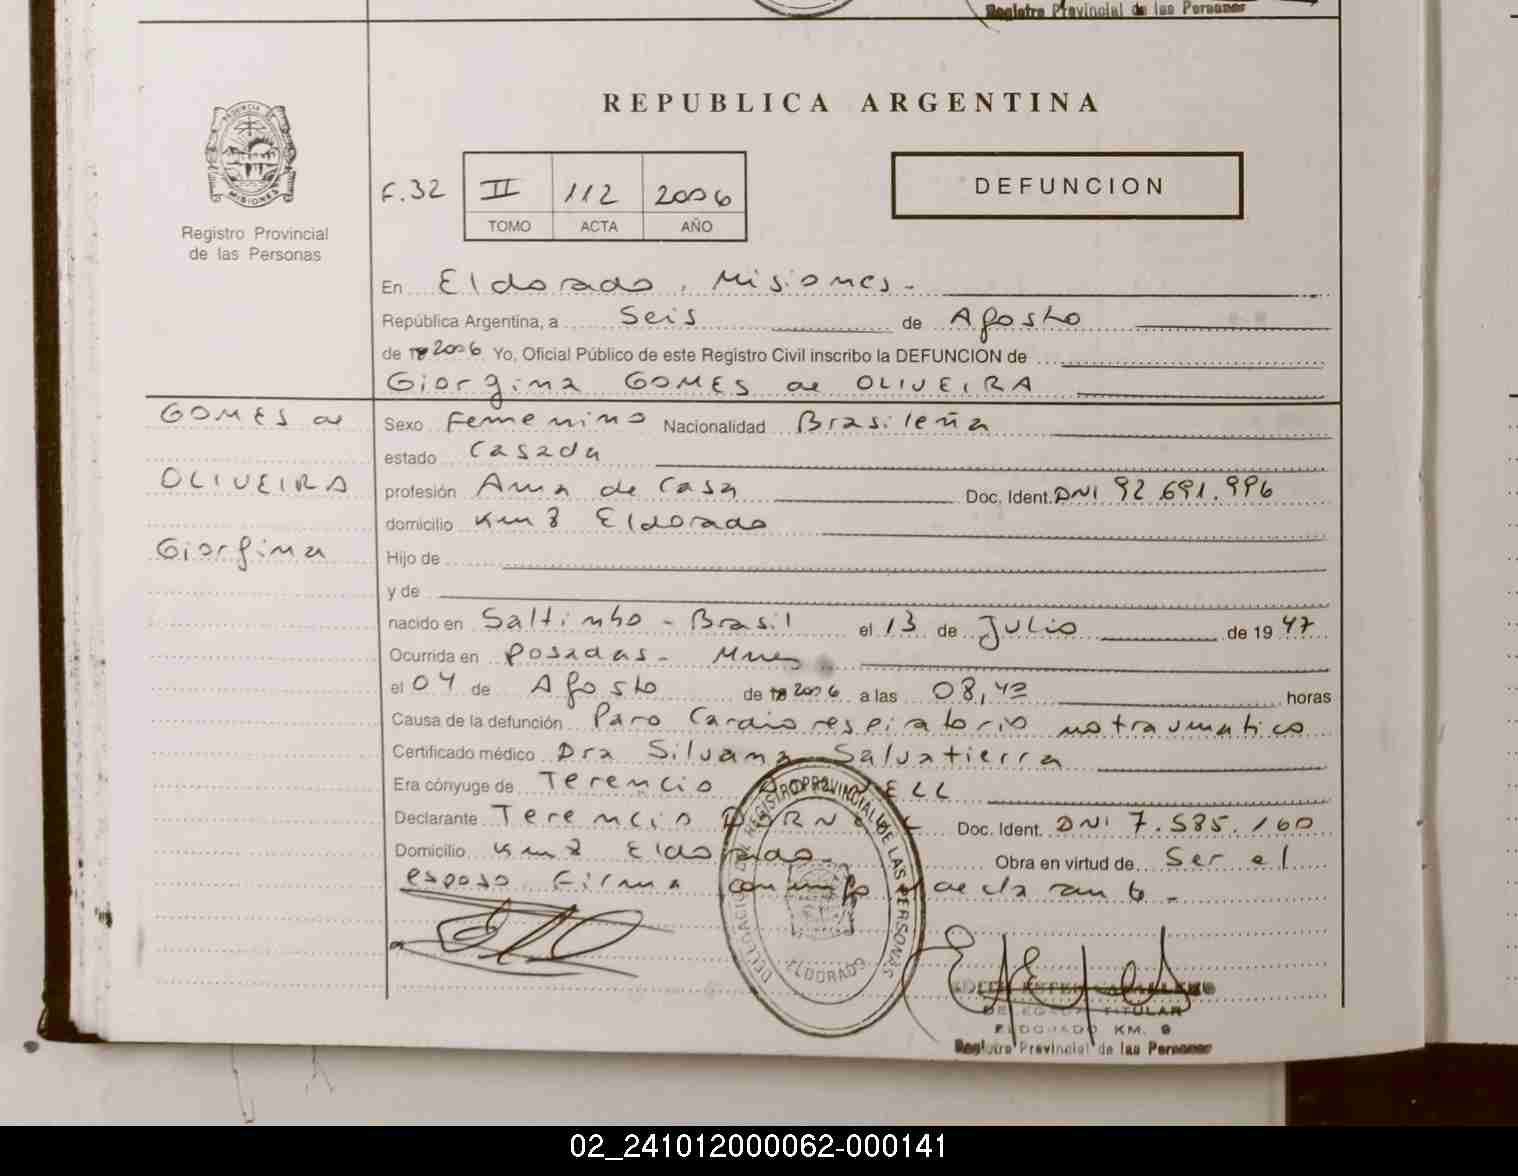 Registro Provincial de las Personas
REPUBLICA ARGENTINA
PROVINCIA DE
MISIONES
Registro Provincial
de las Personas
F.32 II 112 2006
TOMO ACTA AÑO
DEFUNCION
En Eldorado, Misiones.-
República Argentina, a Seis de Agosto
de 2006 Yo, Oficial Público de este Registro Civil inscribo la DEFUNCION de
Giorgina GOMES de OLIVEIRA
GOMES de
OLIVEIRA
Giorgina
Sexo Femenino Nacionalidad Brasileña
estado Casada
profesión Ama de Casa Doc. Ident. DNI 92.691.996
domicilio Km 8 Eldorado
Hijo de
y de
nacido en Saltinho - Brasil el 13 de Julio de 1947
Ocurrida en Posadas - Mnes
el 04 de Agosto de 2006 a las 08,42 horas
Causa de la defunción Paro Cardiorespiratorio no traumatico
Certificado médico Dra Silvana Salvatierra
Era cónyuge de Terencio
Declarante Terencio Doc. Ident. DNI 7.585.160
Domicilio Km 8 Eldorado- Obra en virtud de Ser el
esposo. Firma conmigo el declarante.-
DELEGACION DEL REGISTRO PROVINCIAL DE LAS PERSONAS
ELDORADO
DELEGADA TITULAR
ELDORADO KM. 9
Registro Provincial de las Personas
02_241012000062-000141